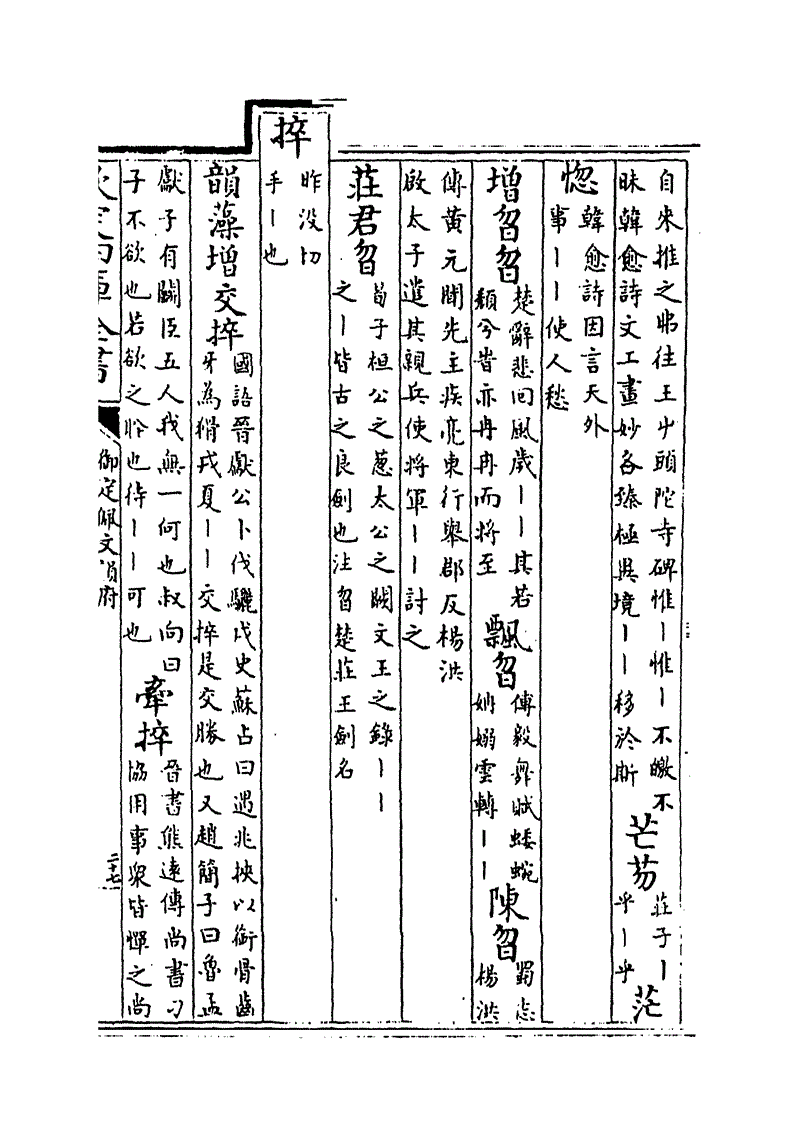 自來推之弗往王屮頭陀寺碑惟丨惟丨不皦不
昧韓愈詩文工畫妙各臻極異境丨丨移於斯
芒芴
莊子丨
乎丨乎
茫
惚
韓愈詩因言天外
事丨丨使人愁
增曶曶
楚辭悲回風歲丨丨其若
頹兮峕亦冉冉而將至
飄曶
傅毅舞賦蜲蜿
姌嫋雲轉丨丨
陳曶
蜀志
楊洪
傳黃元聞先主疾亮東行舉郡反楊洪
啟太子遣其親兵使將軍丨丨討之
莊君曶
荀子桓公之蔥太公之闕文王之錄丨丨
之丨皆古之良劍也注曶楚莊王劍名
捽
昨沒切
手丨也
韻藻增交捽
國語晉獻公卜伐驪戎史蘇占曰遇兆挾以銜骨齒
牙為猾戎夏丨丨交捽是交勝也又趙簡子曰魯孟
獻子有鬭臣五人我無一何也叔向曰
子不欲也若欲之肸也待丨丨可也
牽捽
晉書熊遠傳尚書刁
協用事衆皆憚之尚
欽定四庫全書
御定佩文韻府
二十七